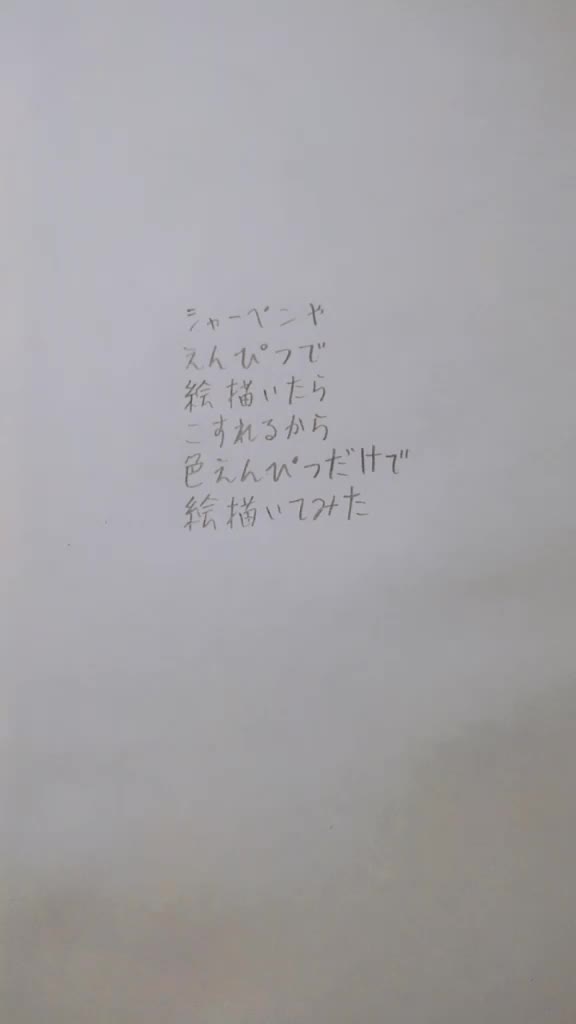 シャーペンや
えんぴつで
絵描いたら
こすれるから
色えんぴつだけで
絵描いてみた